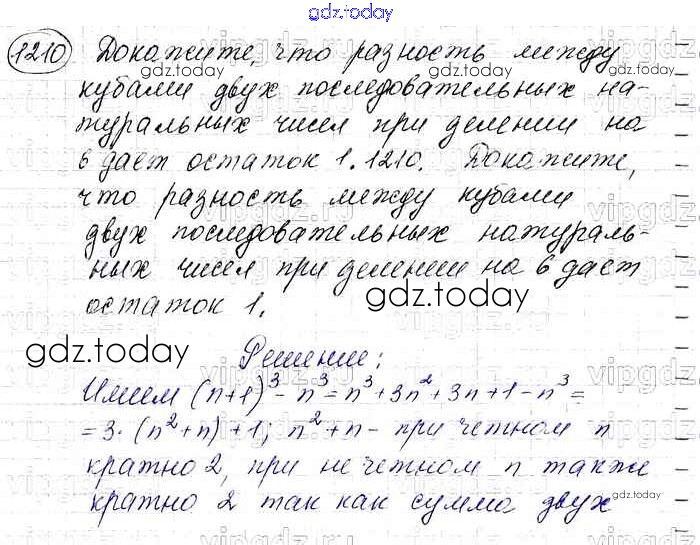 gdz.today
1210 Докажите, что разность между
кубами двух последовательных на-
туральных чисел при делении на
6 даёт остаток 1. 1210. Докажите,
что разность между кубами
двух последовательных натураль-
ных чисел при делении на 6 даёт
остаток 1.
Решение:
Имеем (n+1)³ - n³ = n³ + 3n² + 3n + 1 - n³ =
= 3 · (n² + n) + 1; n² + n - при четном n
кратно 2, при нечетном n также
кратно 2 так как сумма двух
gdz.today
gdz.today
gdz.today
gdz.today
gdz.today
gdz.today
gdz.today
gdz.today